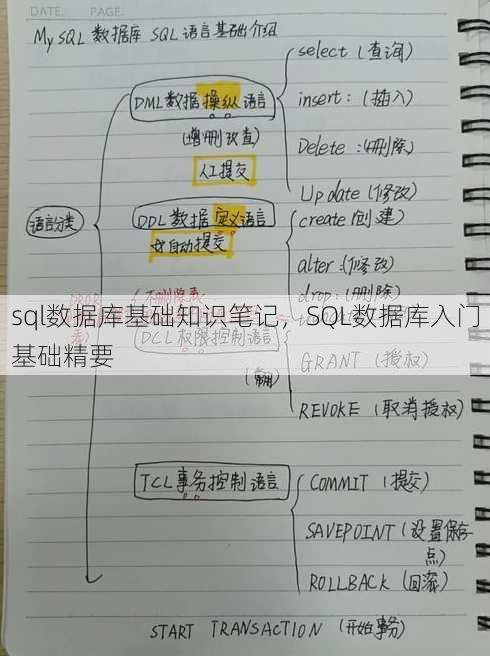 DATE.
PAGE:
MySQL 数据库 SQL语言基础介绍
语言分类
DML数据操纵语言
(增删改查)
人工提交
select (查询)
insert: (插入)
Delete :(删除)
Update (修改)
DDL 数据定义语言
自动提交
create (创建)
alter:(修改)
drop:(删除)
sql数据库基础知识笔记，SQL数据库入门
基础精要
DCL 权限控制语言
GRANT (授权)
REVOKE (取消授权)
TCL事务控制语言
COMMIT (提交)
SAVEPOINT (设置保存
点)
ROLLBACK (回滚)
START TRANSACTION (开始事务)